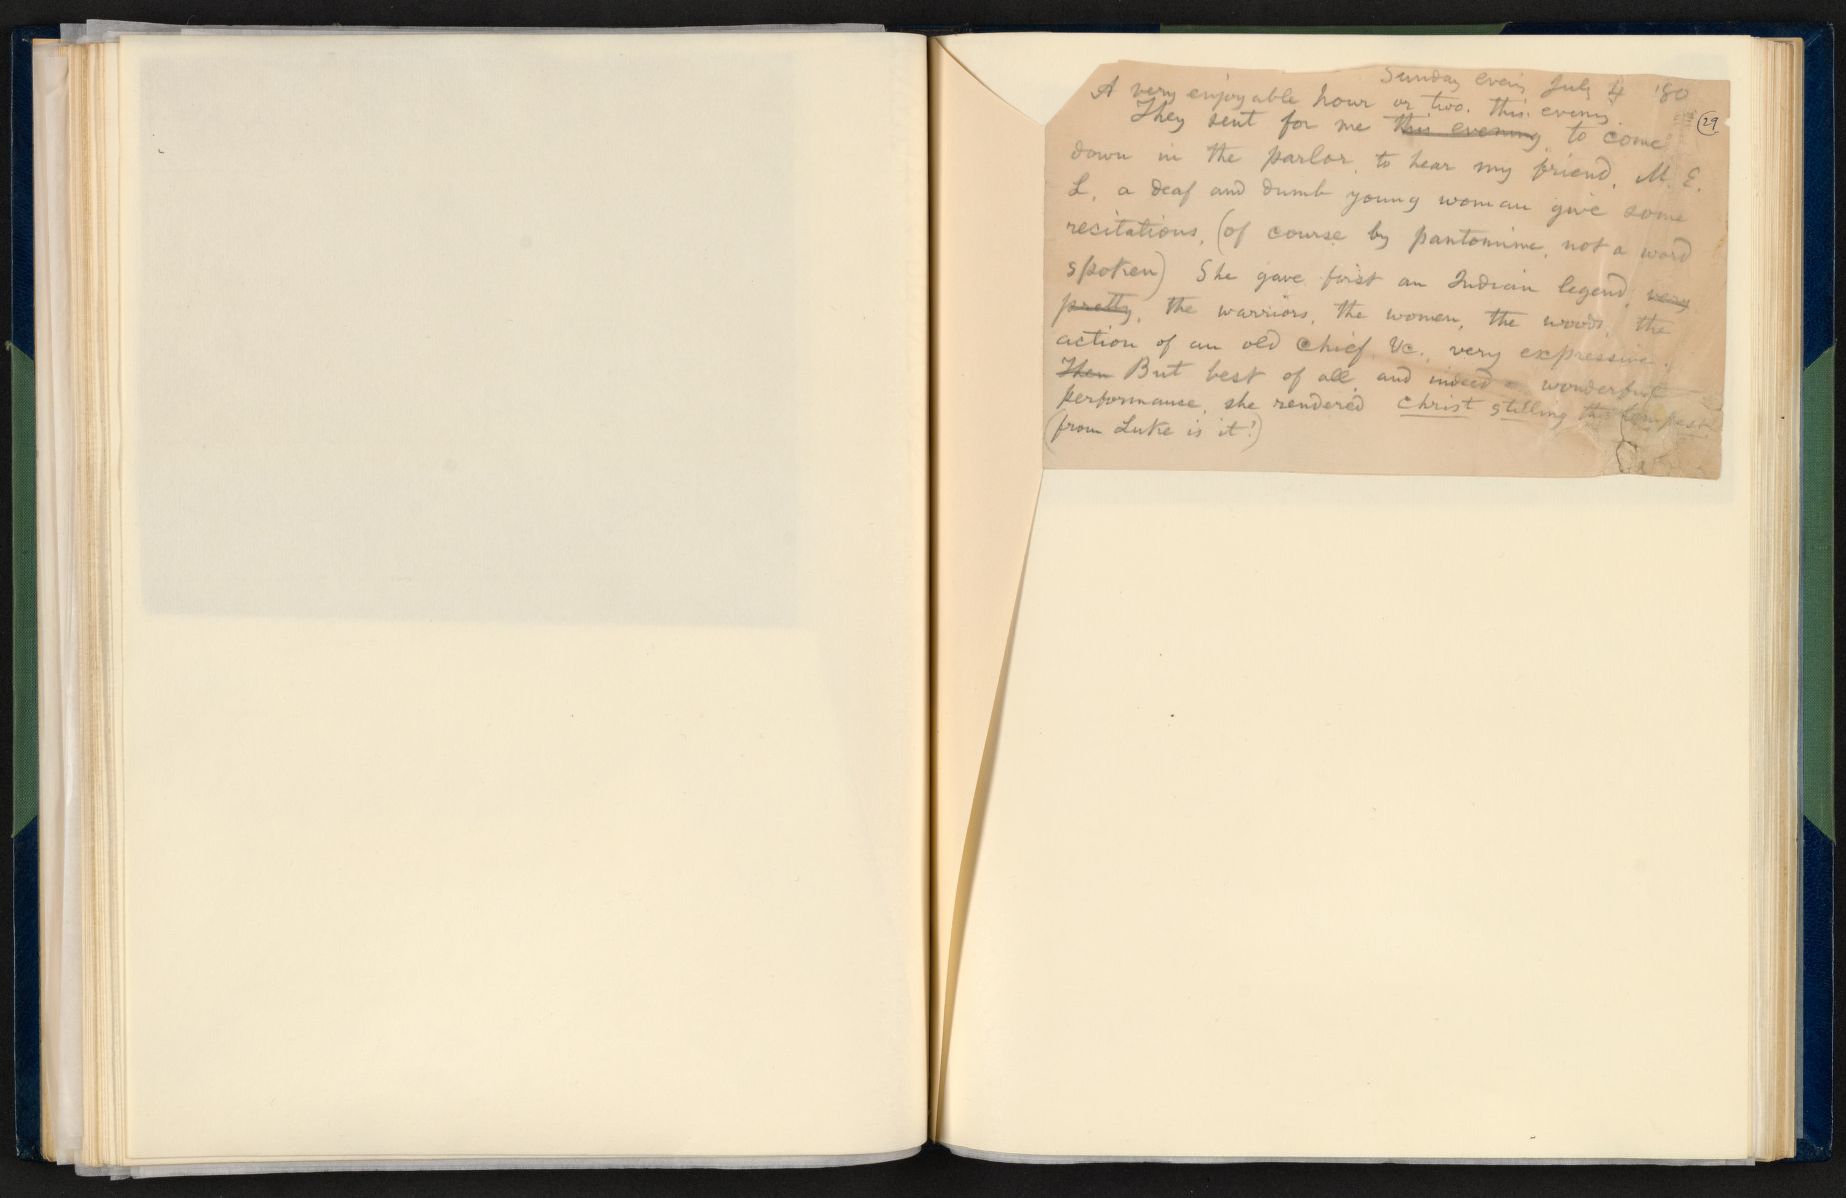 Sunday evening July 4 '80
A very enjoyable hour or two. this evening.
29
They sent for me this evening, to come
down in the parlor, to hear my friend, M. E.
L, a deaf and dumb young woman give some
recitations, (of course by pantomime, not a word
spoken) She gave first an Indian legend, very
pretty, the warriors, the women, the woods, the
action of an old chief, &c., very expressive.
Then But best of all, and indeed a wonderful
performance, she rendered Christ stilling the tempest
(from Luke is it?)